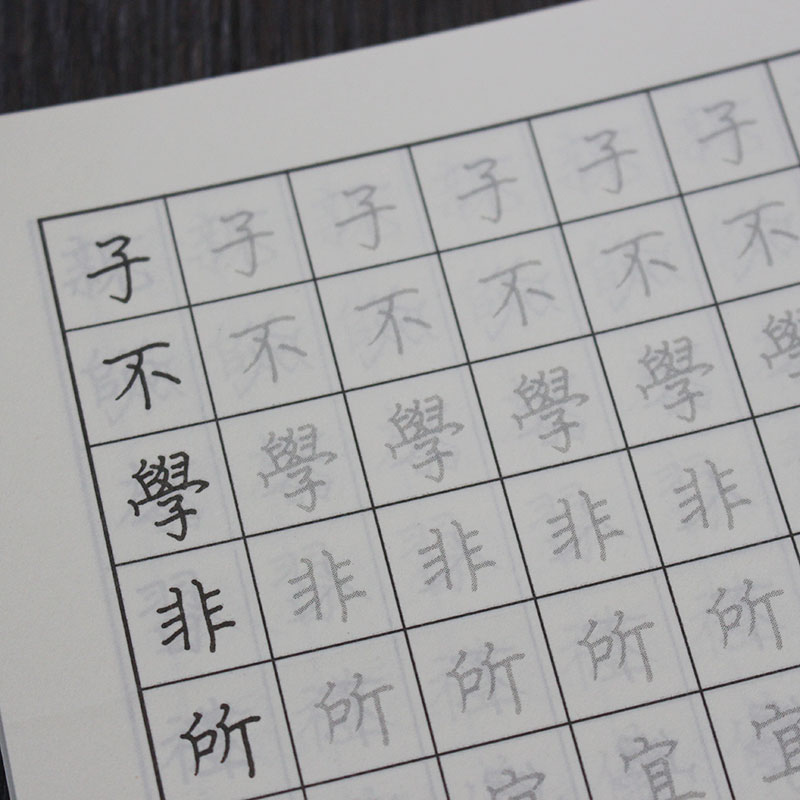 子子子子子子
不不不不不不
學學學學學學
非非非非非
所所所所所
宜宜